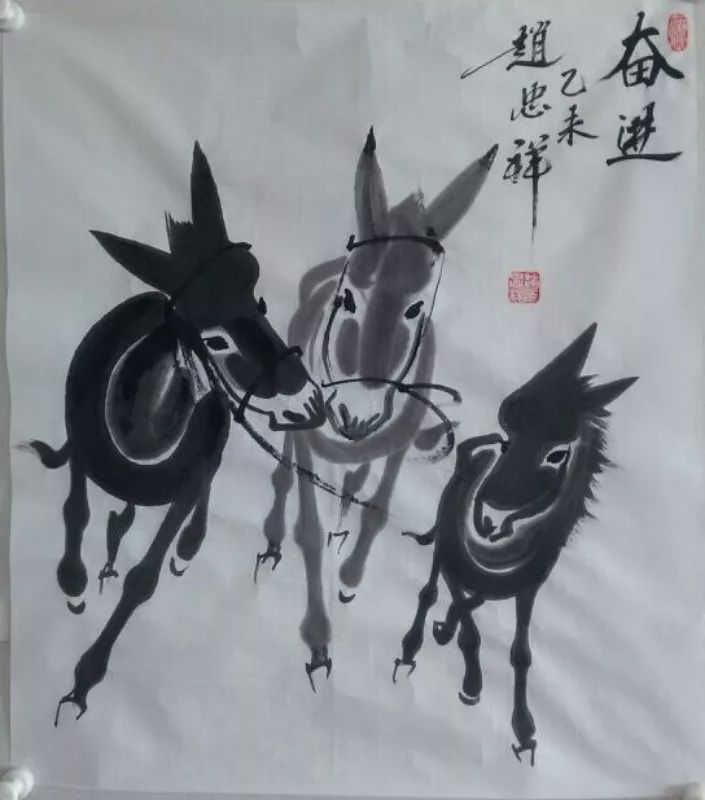 奋进
乙未
趙忠祥